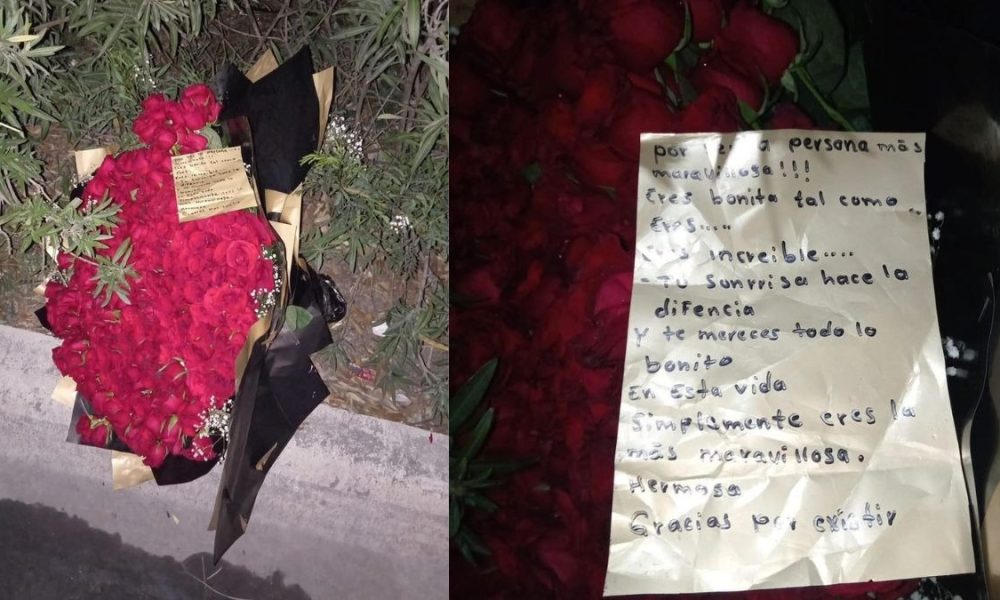 por persona más
maravillosa!!!
Eres bonita tal como
Eres....
increible....
- Tu sonrrisa hace la
difencia
Y te mereces todo lo
bonito
En Esta vida
Simplemente eres la
más maravillosa.
Hermosa
Gracias por existir